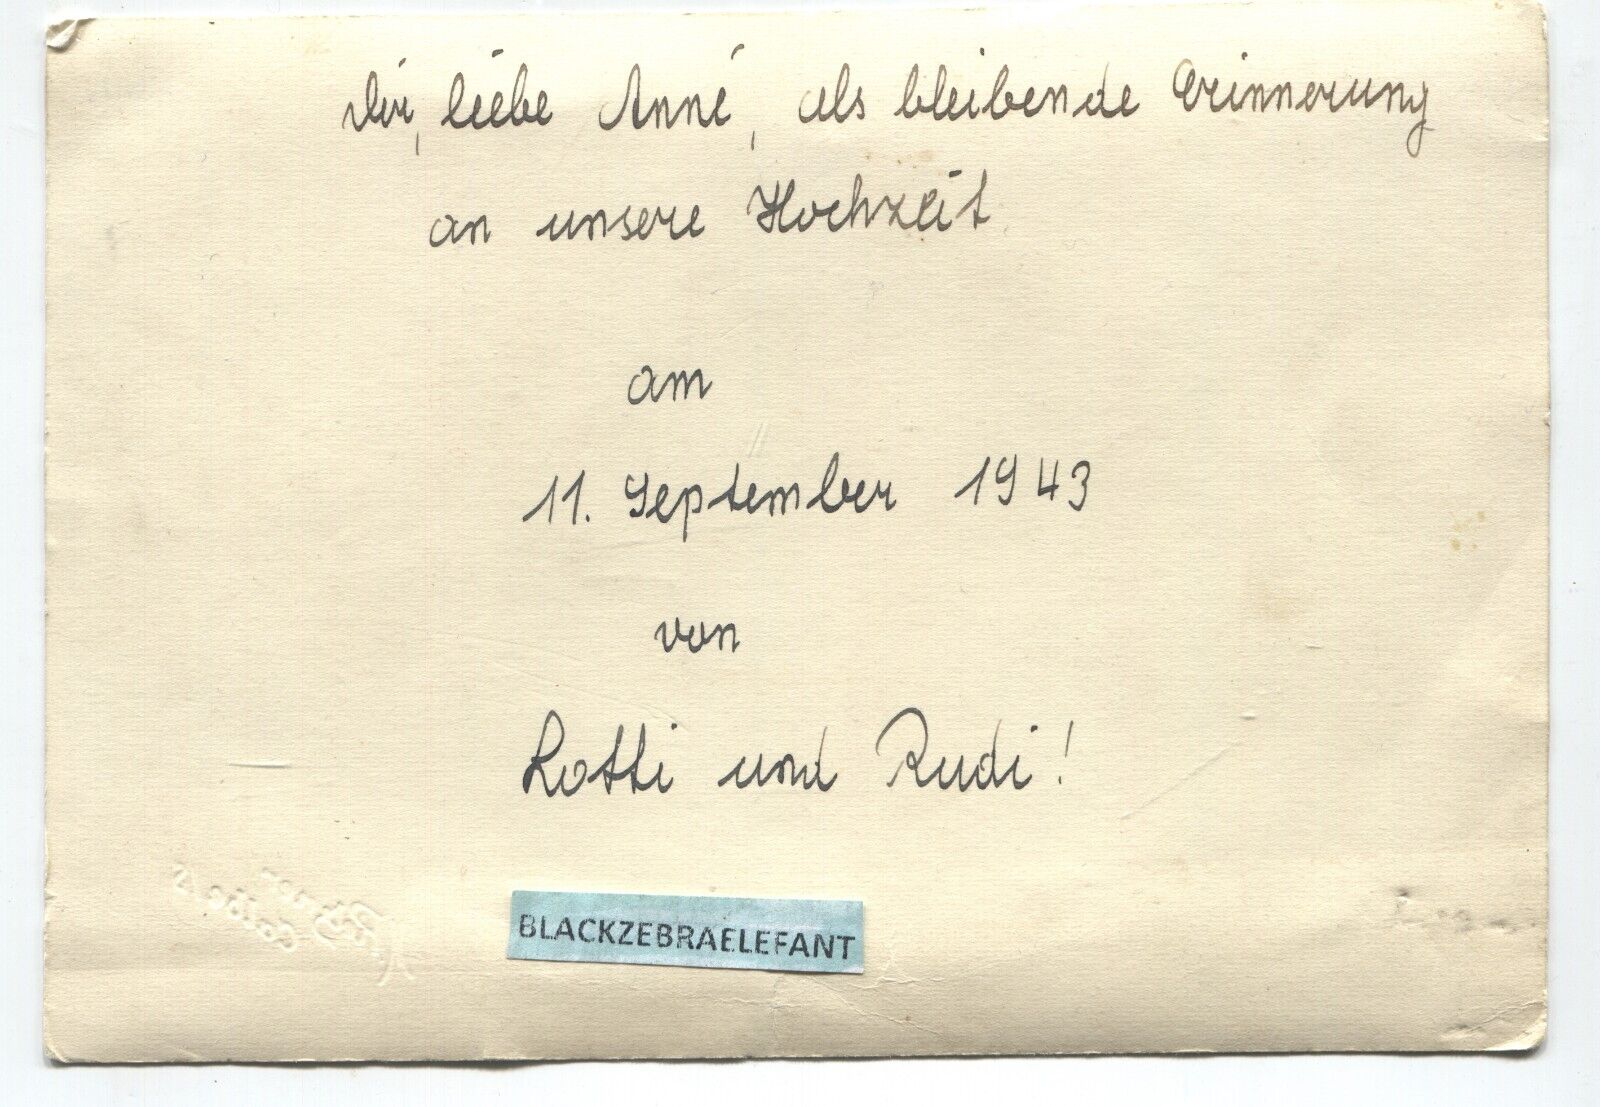 Dir, liebe Anni, als bleibende Erinnerung
an unsere Hochzeit
am
11. September 1943
von
Lotti und Rudi!
BLACKZEBRAELEFANT